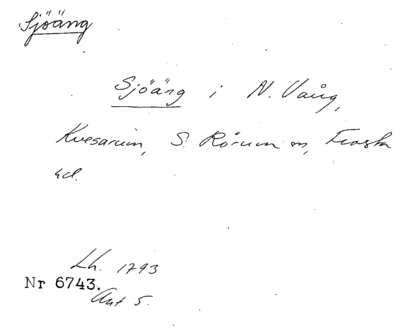 Sjöäng
Sjöäng i N. Vång,
Kvesarum, S. Rörum sn, Frosta
hd.
Lh. 1793
Nr 6743.
Akt 5.